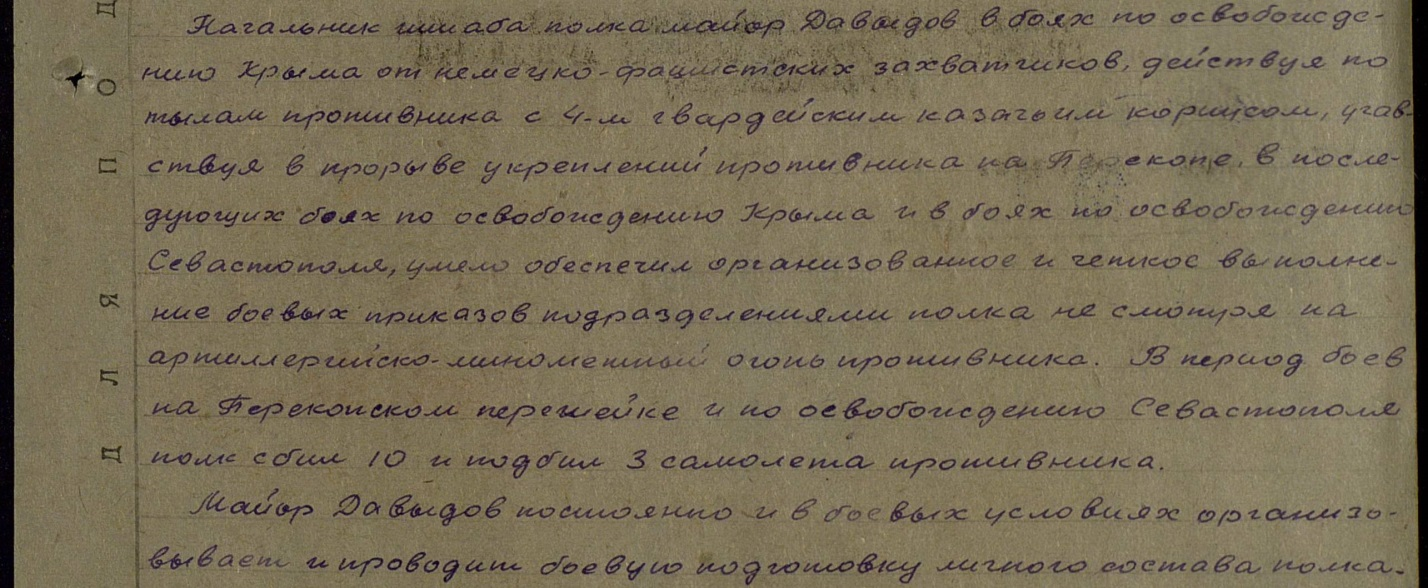 Начальник штаба полка майор Давыдов в боях по освобожде-
нию Крыма от немецко-фашистских захватчиков, действуя по
тылам противника с 4-м гвардейским казачьим корпусом, учав-
ствуя в прорыве укреплений противника на Перекопе, в после-
дующих боях по освобождению Крыма и в боях по освобождению
Севастополя, умело обеспечил организованное и четкое выполне-
ние боевых приказов подразделениями полка не смотря на
артиллерийско-минометный огонь противника. В период боев
на Перекопском перешейке и по освобождению Севастополя
полк сбил 10 и подбил 3 самолета противника.
Майор Давыдов постоянно и в боевых условиях организо-
вывает и проводит боевую подготовку личного состава полка.
Д Л Я П О Д